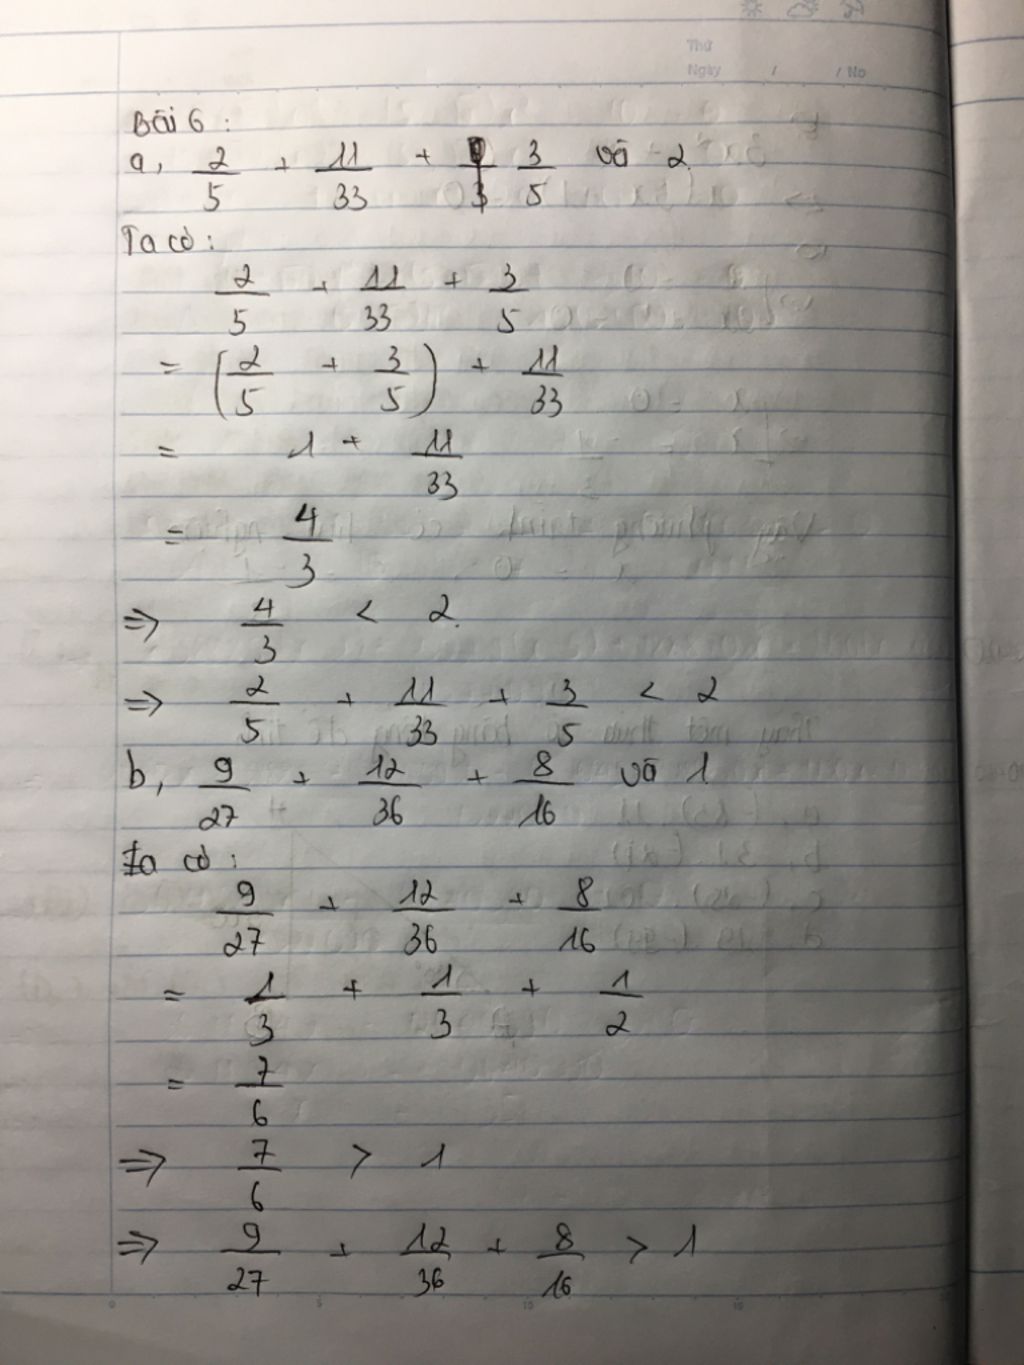 Thứ
Ngày / / No
Bài 6 :
a, 2/5 + 11/33 + 3/5 và 2.
Ta có :
2/5 + 11/33 + 3/5
= (2/5 + 3/5) + 11/33
= 1 + 11/33
= 4/3
⇒ 4/3 < 2.
⇒ 2/5 + 11/33 + 3/5 < 2
b, 9/27 + 12/36 + 8/16 và 1
Ta có :
9/27 + 12/36 + 8/16
= 1/3 + 1/3 + 1/2
= 7/6
⇒ 7/6 > 1
⇒ 9/27 + 12/36 + 8/16 > 1
0 5 10 15